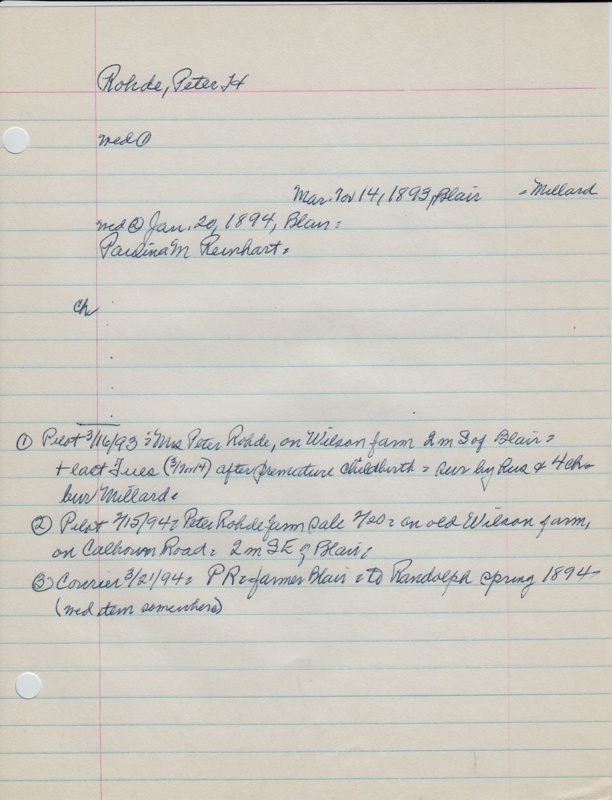 Rohde, Peter H
wed ①
Mar. Nov 14, 1893, Blair = Millard
wed ② Jan. 20, 1894, Blair =
Paulina M Reinhart =
ch
① Pilot 3/16/93 = Mrs Peter Rohde, on Wilson farm 2 m S of Blair =
+ last Tues (3/7 or 14) after premature childbirth = sur by hus & 4 ch =
bur Millard =
② Pilot 2/15/94 = Peter Rohde farm sale 2/20 = on old Wilson farm,
on Calhoun Road = 2 m SE of Blair =
③ Courier 3/21/94 = P R = farmer Blair = to Randolph spring 1894
(wed item somewhere)